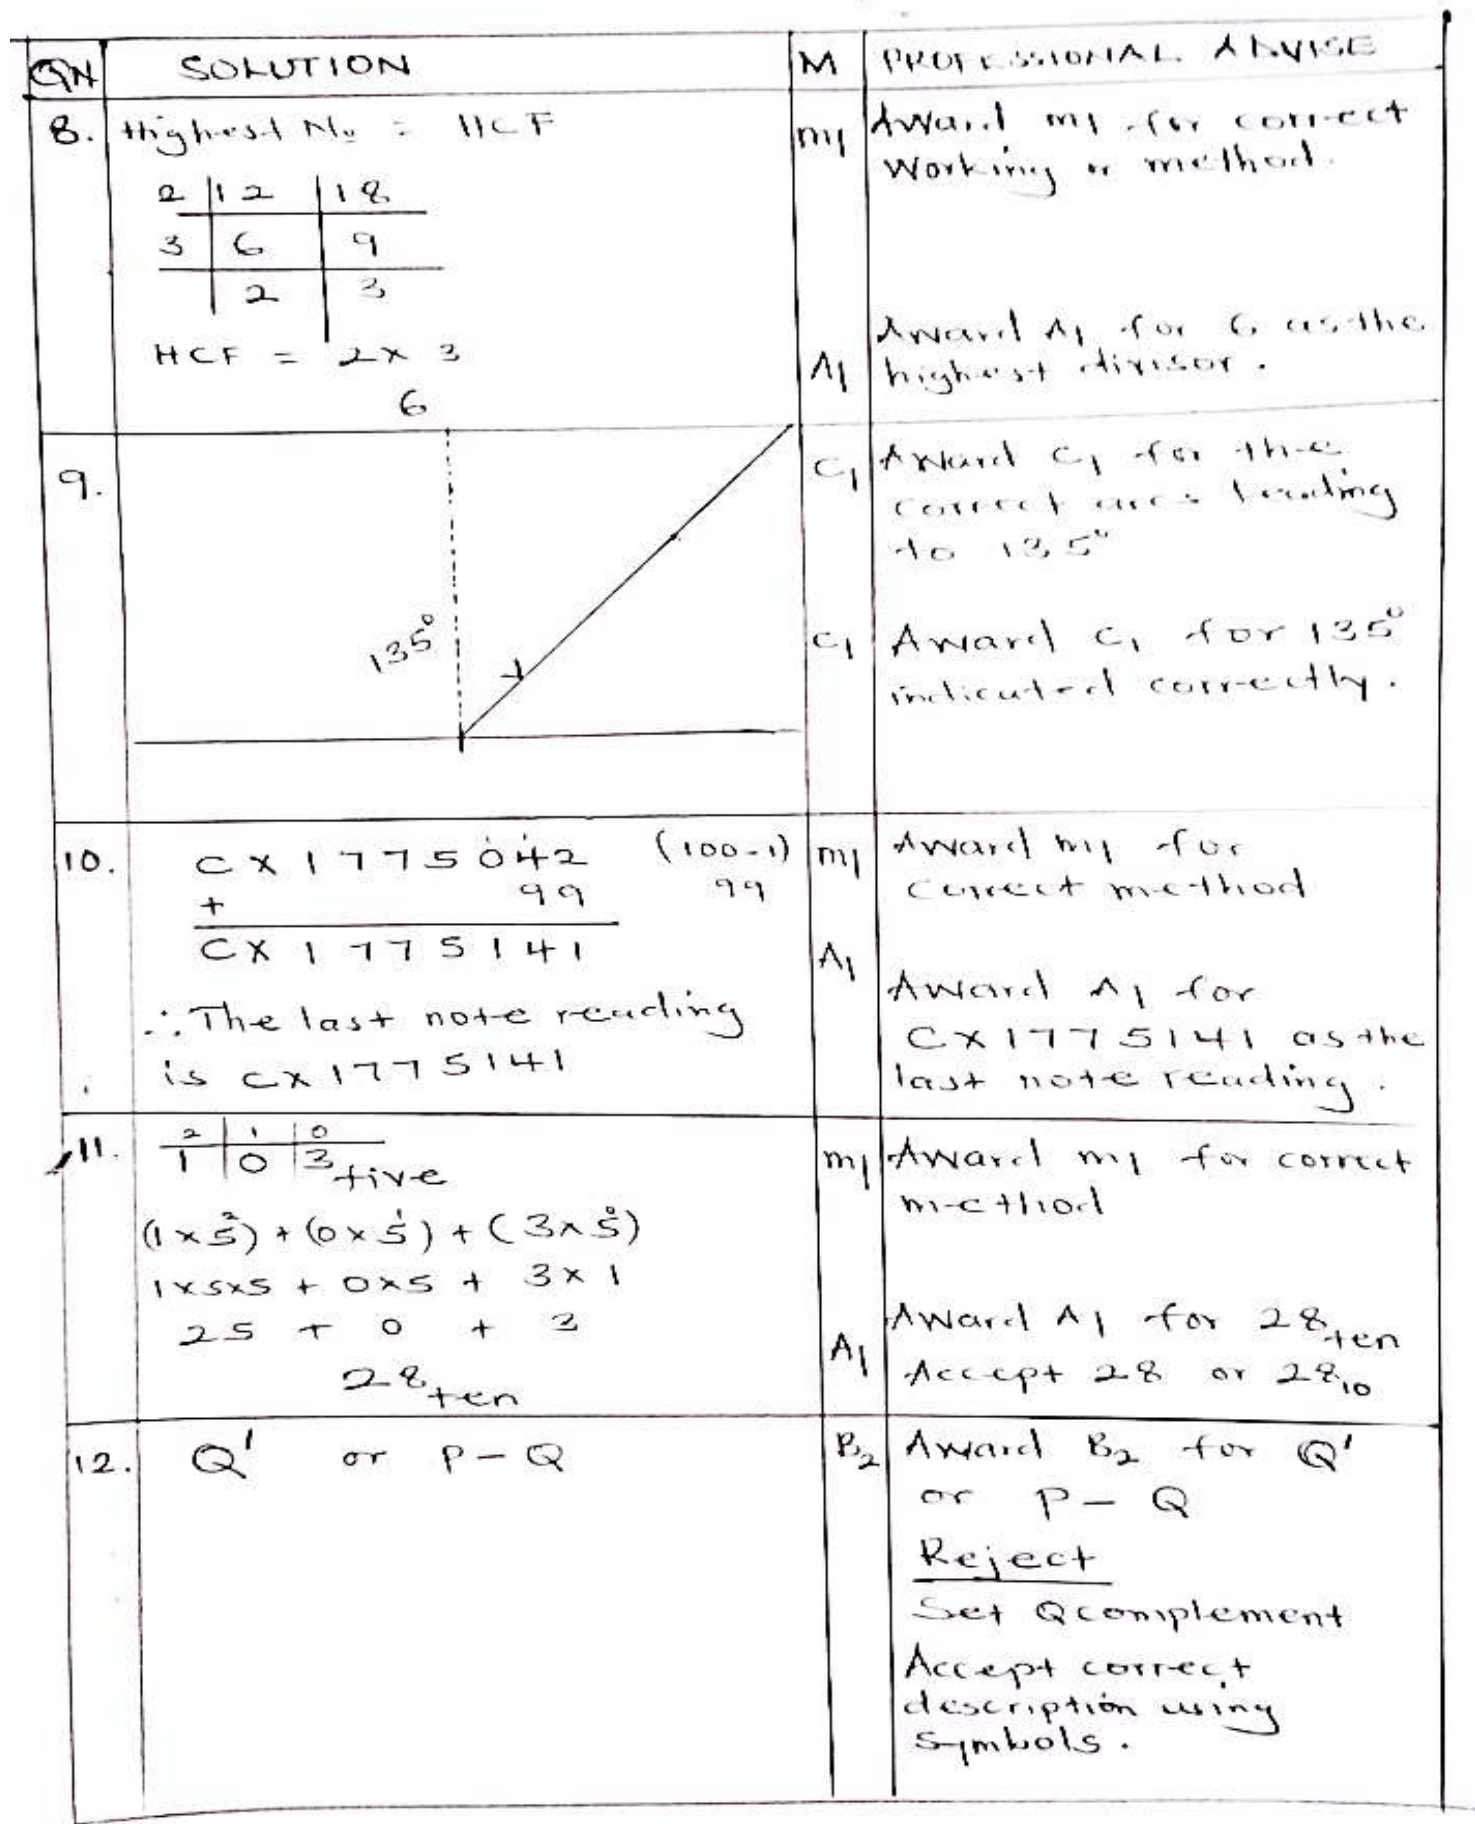 QN SOLUTION M PROFESSIONAL ADVISE
8. Highest No = HCF
2 12 18
3 6 9
2 3
HCF = 2 x 3
6
M1 Award M1 for correct
working or method.
A1 Award A1 for 6 as the
highest divisor.
9.
135°
C1 Award C1 for the
correct arcs leading
to 135°
C1 Award C1 for 135°
indicated correctly.
10. CX 1775042 (100-1)
+ 99 99
CX 1775141
∴ The last note reading
is CX 1775141
M1 Award M1 for
correct method
A1 Award A1 for
CX 1775141 as the
last note reading.
11. 2 1 0
1 0 3 five
(1 x 5²) + (0 x 5¹) + (3 x 5⁰)
1x5x5 + 0x5 + 3 x 1
25 + 0 + 3
28 ten
M1 Award M1 for correct
method
A1 Award A1 for 28 ten
Accept 28 or 28₁₀
12. Q' or P - Q
B2 Award B2 for Q'
or P - Q
Reject
Set Q complement
Accept correct
description using
symbols.